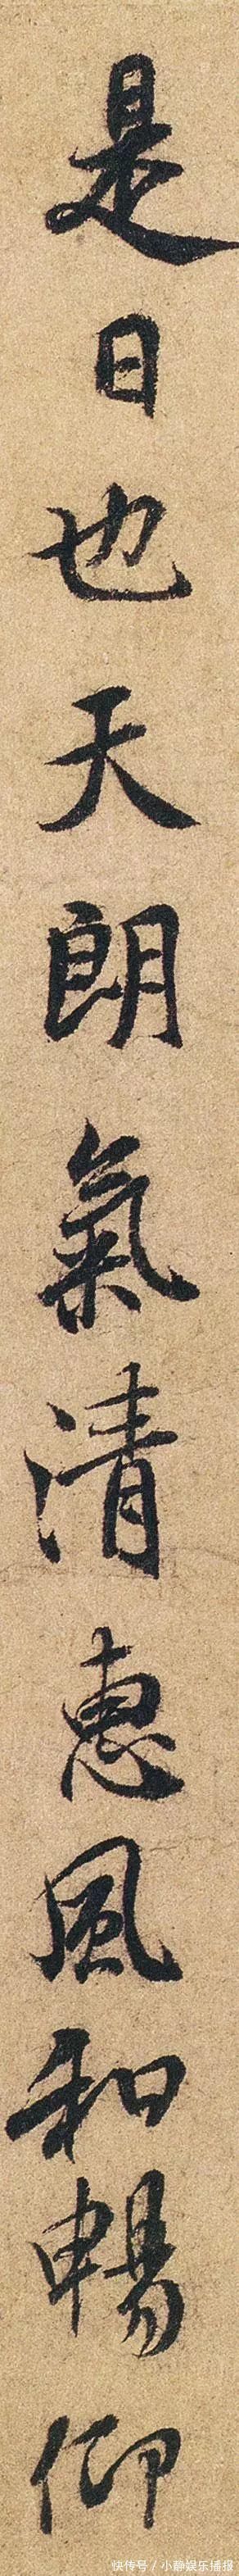 是日也天朗氣清惠風和暢仰
快传号/小静娱乐播报